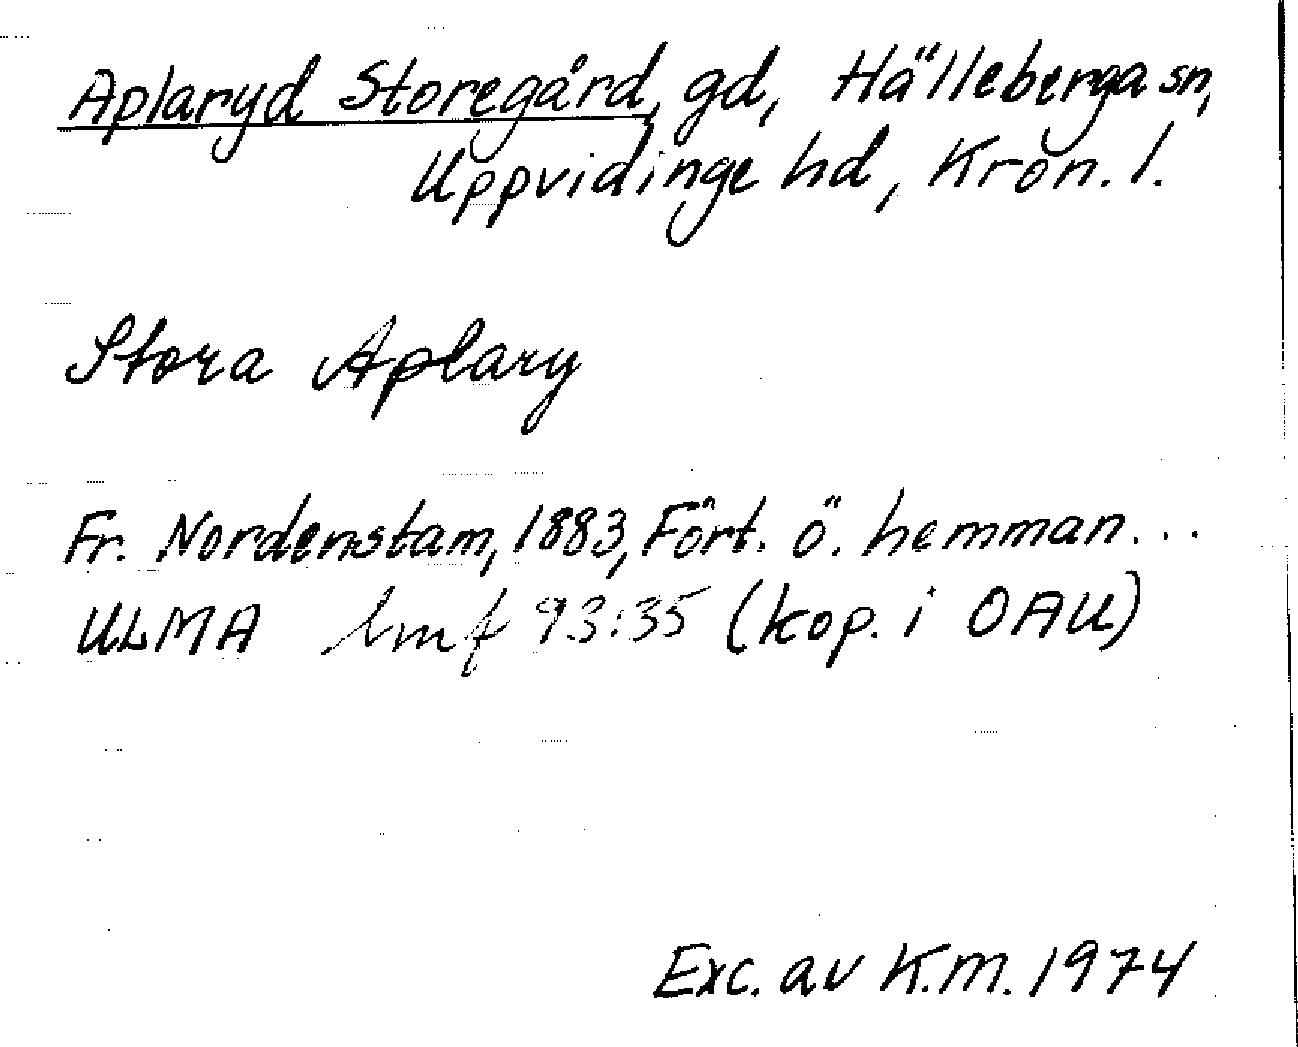 Aplaryd Storegård, gd, Hälleberga sn,
Uppvidinge hd, Kron. l.
Stora Aplary
Fr. Nordenstam, 1883, Fört. ö. hemman...
ULMA lmf 93:35 (kop. i OAU)
Exc. av K.M. 1974